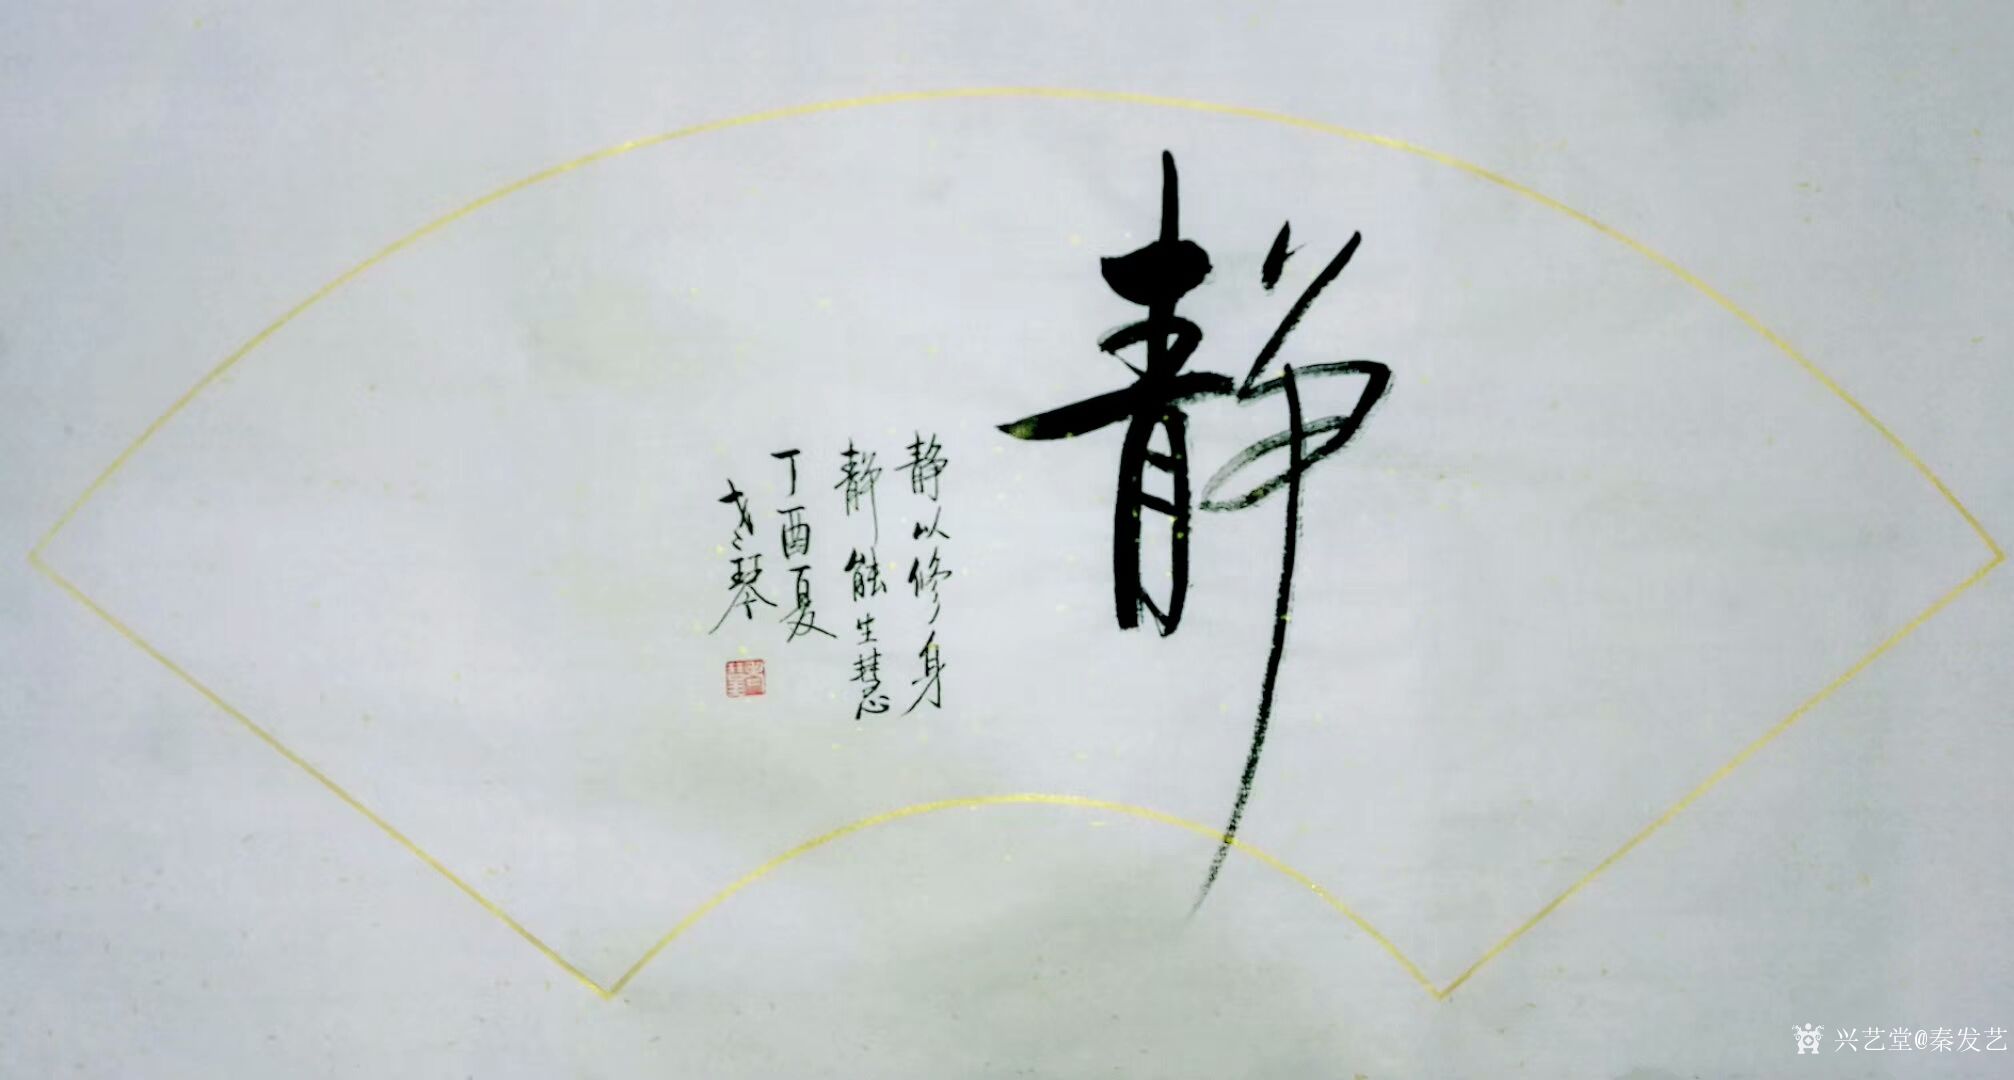 静
静以修身
静能生慧
丁酉夏
琴
兴艺堂@秦发艺